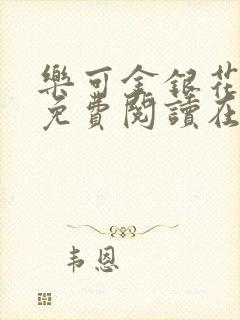 樂可金銀花
免費閱讀在
韦恩